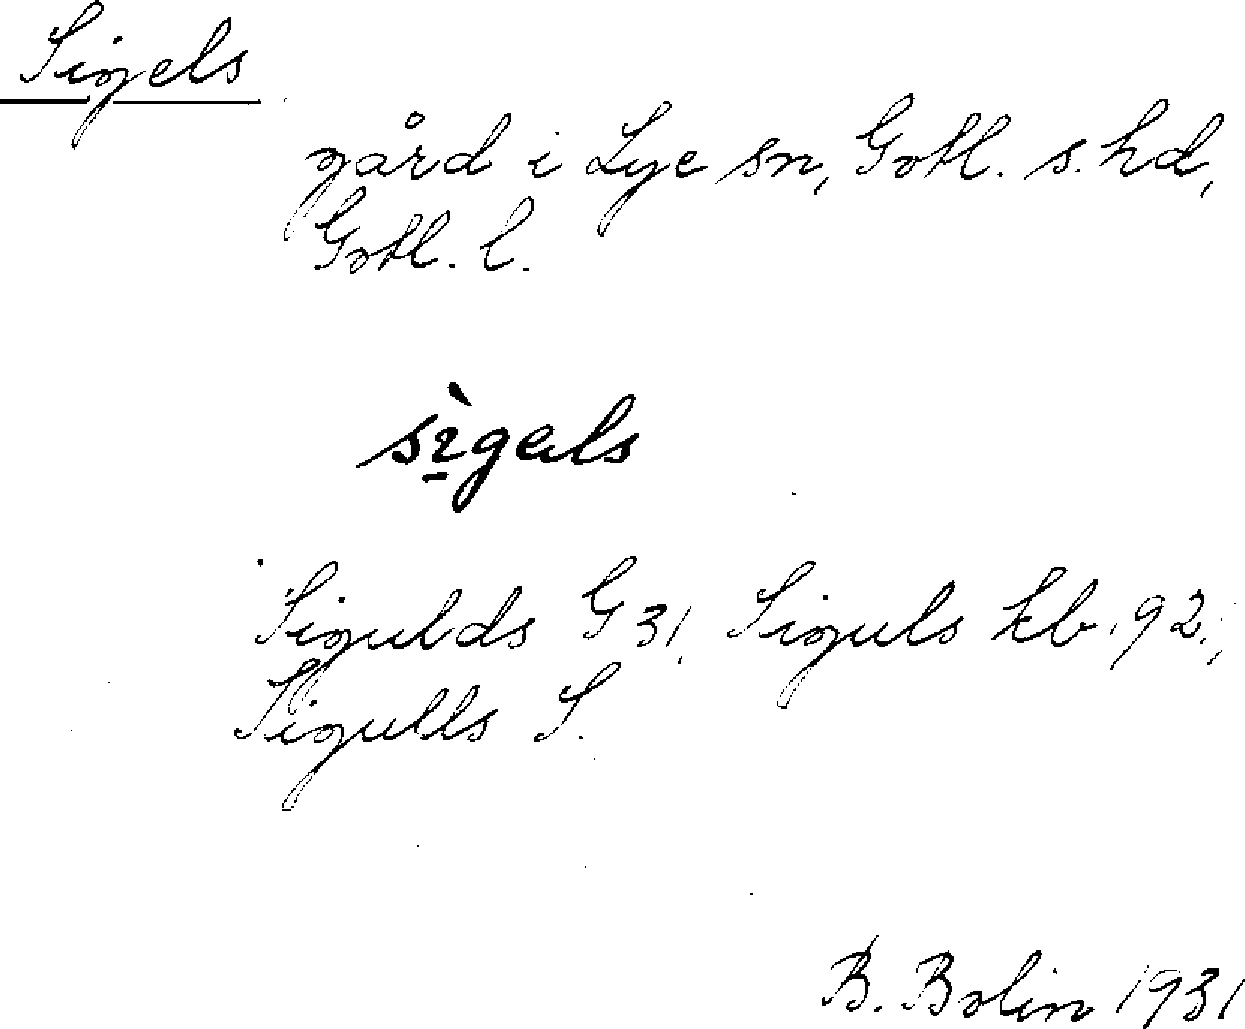 Sigels
gård i Lye sn, Gotl. s. hd,
Gotl. l.
sìgals
Sigulds G 31, Siguls kb. 92;
Sigulls S.
B. Bolin 1931